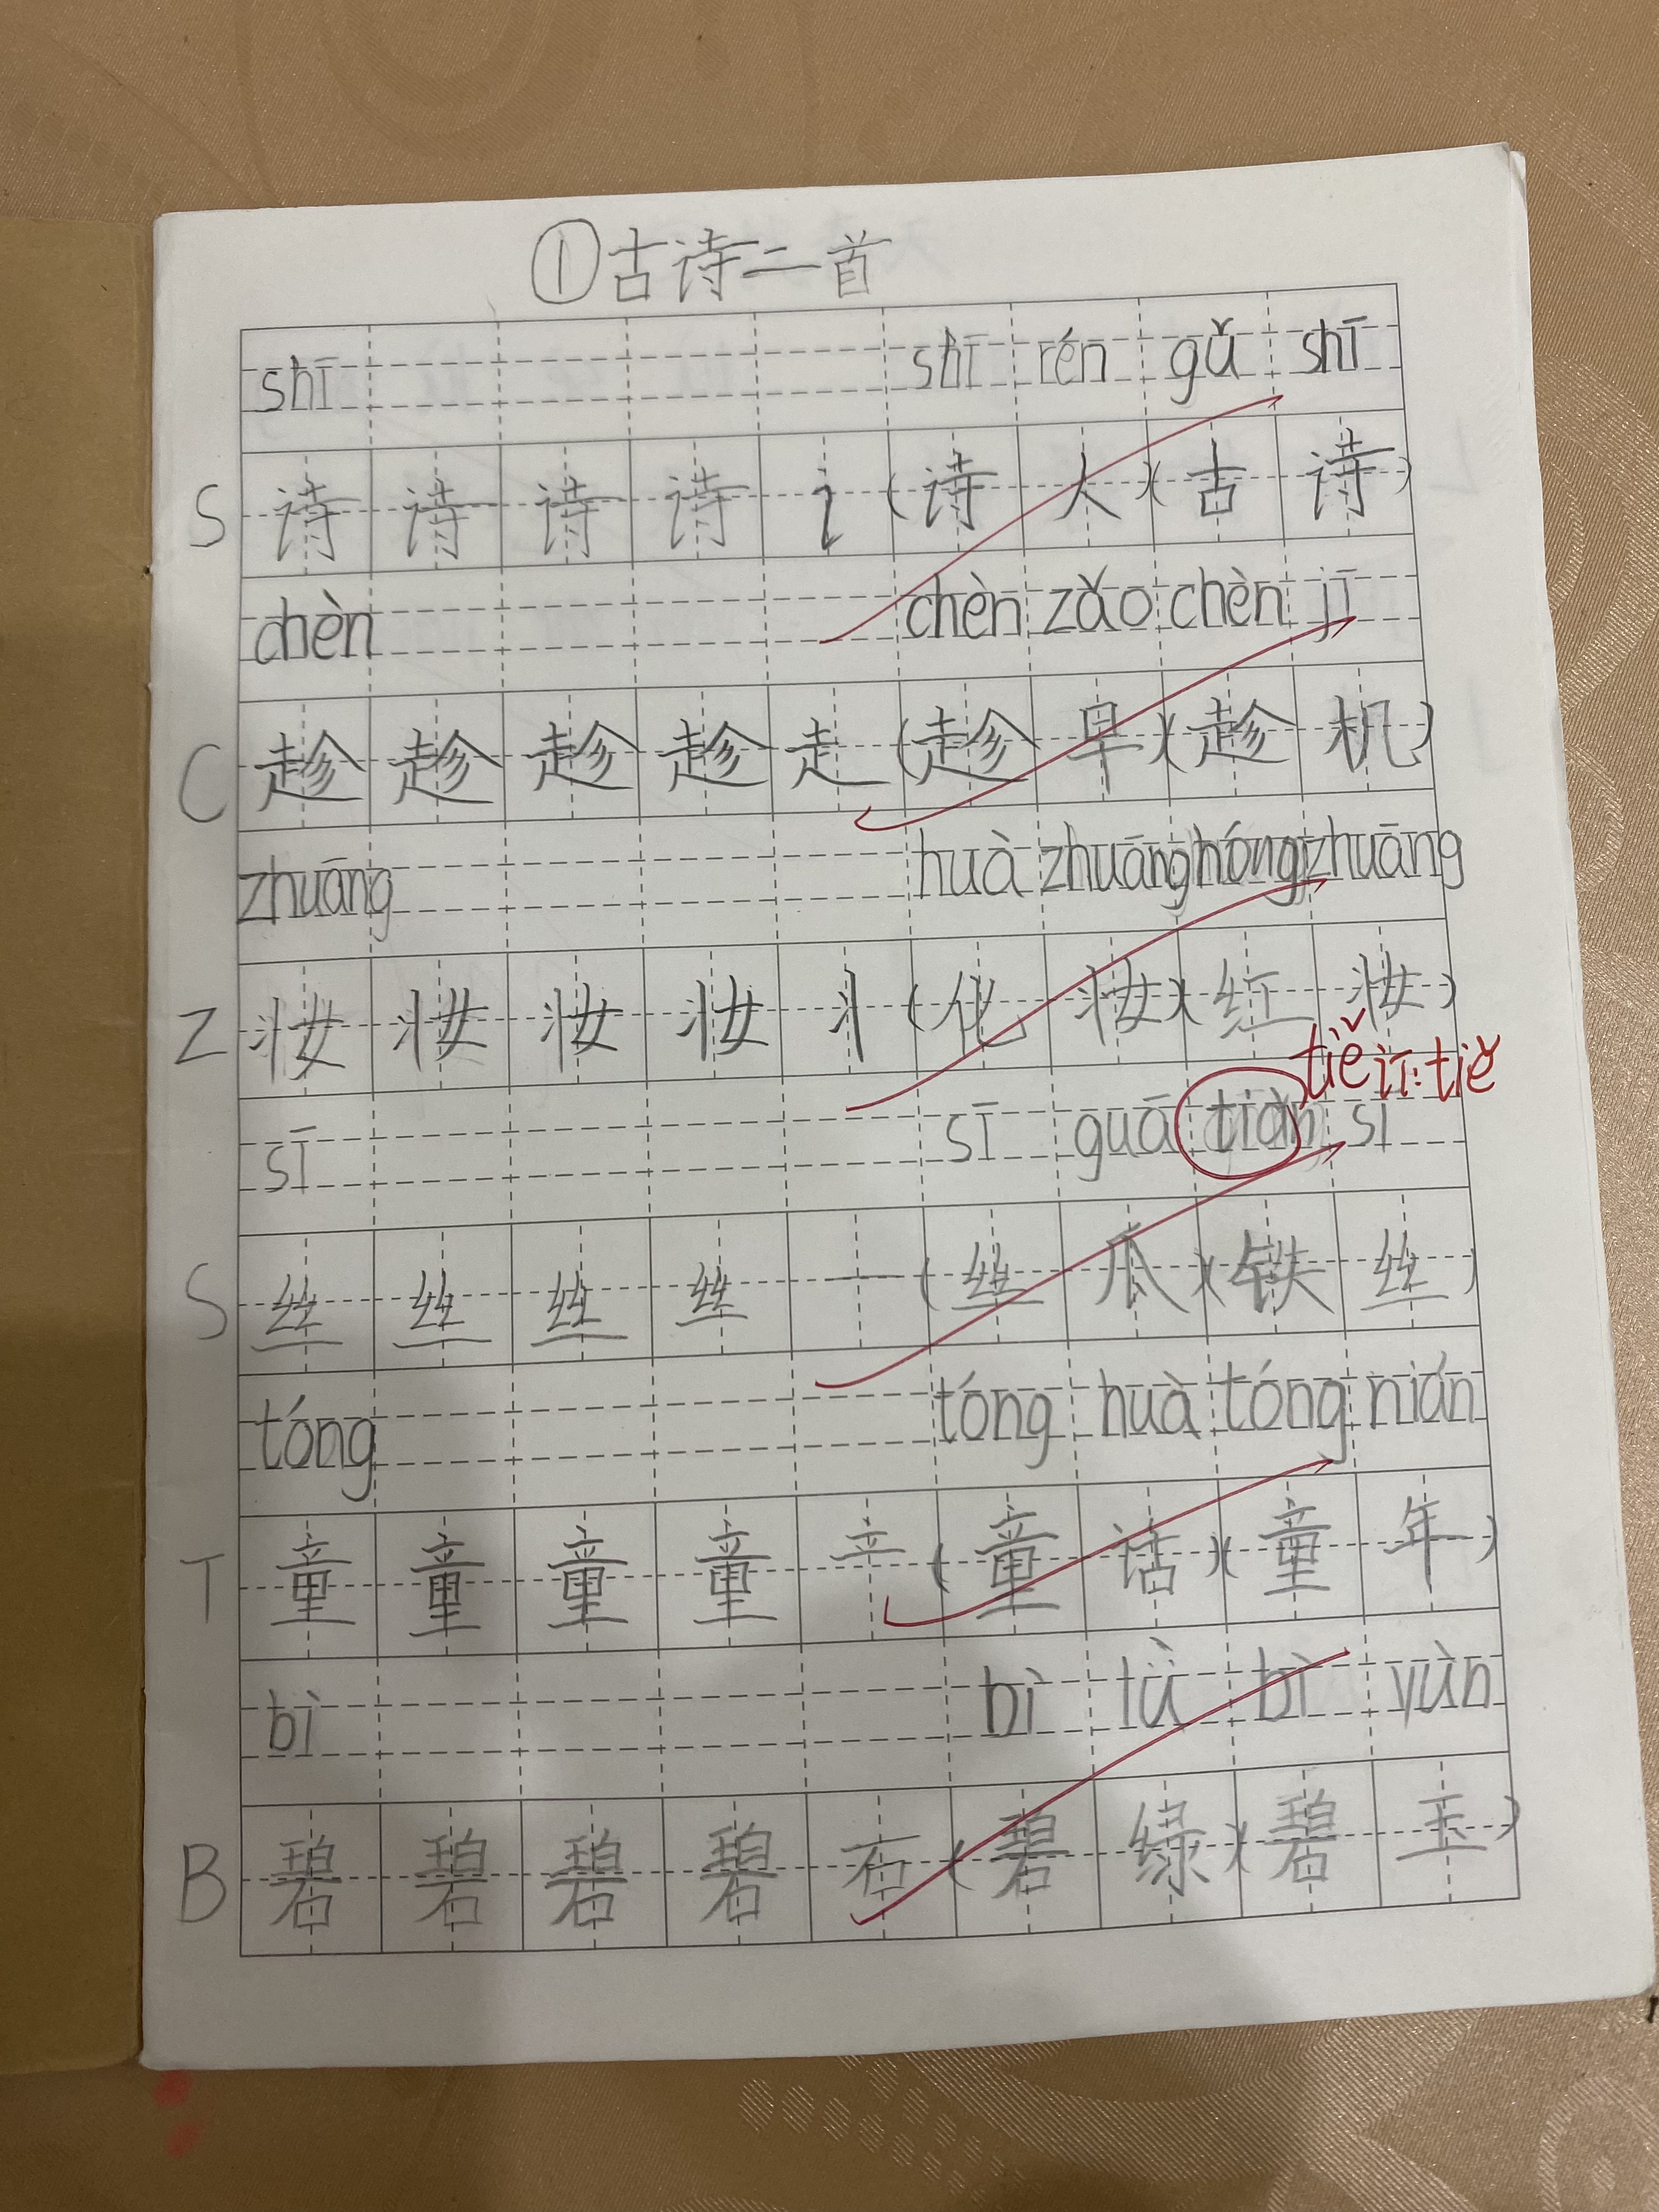 ①古诗二首
shī shī rén gǔ shī
S 诗 诗 诗 诗 讠 (诗 人)(古 诗)
chèn chèn zǎo chèn jī
C 趁 趁 趁 趁 走 (趁 早)(趁 机)
zhuāng huà zhuāng hóng zhuāng
Z 妆 妆 妆 妆 丬 (化 妆)(红 妆)
tiě 订:tiě
sī sī guā tiàn sī
S 丝 丝 丝 丝 一 (丝 瓜)(铁 丝)
tóng tóng huà tóng nián
T 童 童 童 童 立 (童 话)(童 年)
bì bì lǜ bì yùn
B 碧 碧 碧 碧 石 (碧 绿)(碧 玉)